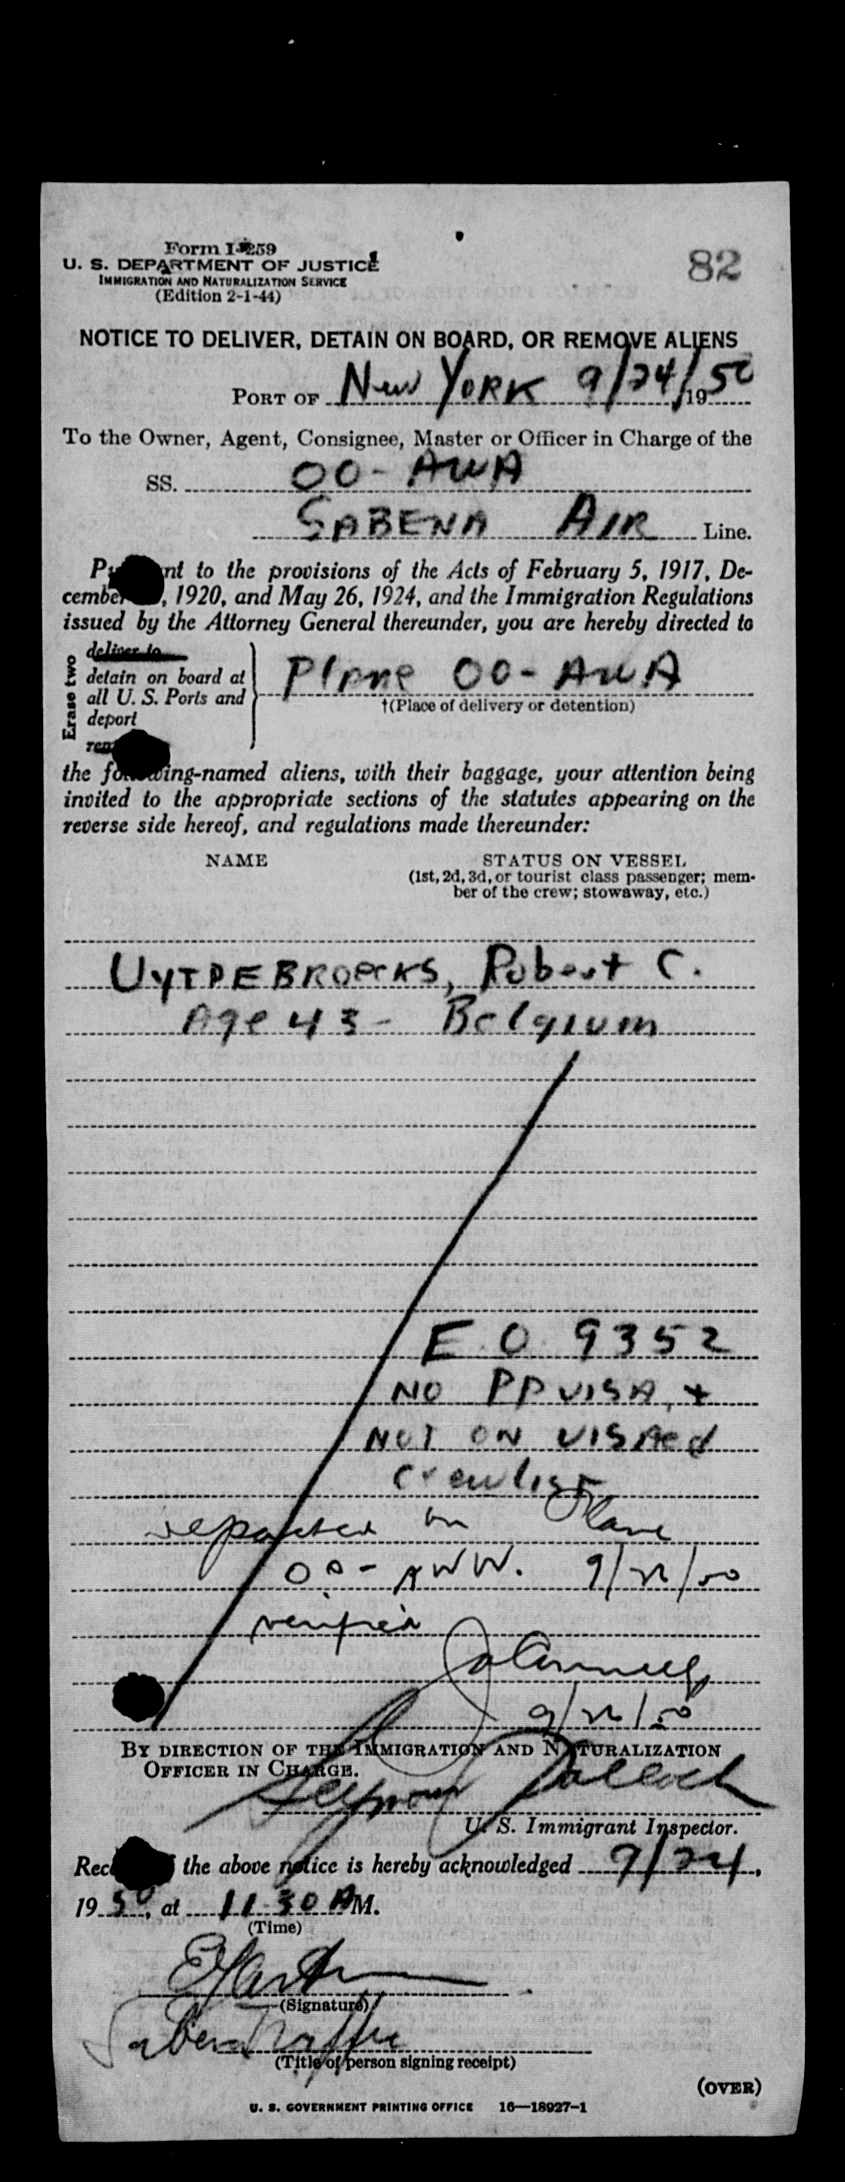 Form I-259
82
U. S. DEPARTMENT OF JUSTICE
IMMIGRATION AND NATURALIZATION SERVICE
(Edition 2-1-44)
NOTICE TO DELIVER, DETAIN ON BOARD, OR REMOVE ALIENS
PORT OF New YORK 9/24/, 1950
To the Owner, Agent, Consignee, Master or Officer in Charge of the
SS. OO-AWA
SABENA AIR Line.
nt to the provisions of the Acts of February 5, 1917, De-
cember , 1920, and May 26, 1924, and the Immigration Regulations
issued by the Attorney General thereunder, you are hereby directed to
Erase two
deliver to
detain on board at
all U. S. Ports and
deport
Plane OO-AWA
†(Place of delivery or detention)
the following-named aliens, with their baggage, your attention being
invited to the appropriate sections of the statutes appearing on the
reverse side hereof, and regulations made thereunder:
NAME STATUS ON VESSEL
(1st, 2d, 3d, or tourist class passenger; mem-
ber of the crew; stowaway, etc.)
UYTDEBROECKS, Robert C.
Age 43 - Belgium
E.O. 9352
NO PP VISA, +
NOT ON VISAed
Crewlist
reported on Plane
OO-AWW. 9/ /50
verified
9/ /50
BY DIRECTION OF THE IMMIGRATION AND NATURALIZATION
OFFICER IN CHARGE.
Seymour Pollock
U. S. Immigrant Inspector.
Rec the above notice is hereby acknowledged 9/24,
1950, at 11:30 AM.
(Time)
(Signature)
Sabena Traffic
(Title of person signing receipt)
(OVER)
U. S. GOVERNMENT PRINTING OFFICE 16—18927-1